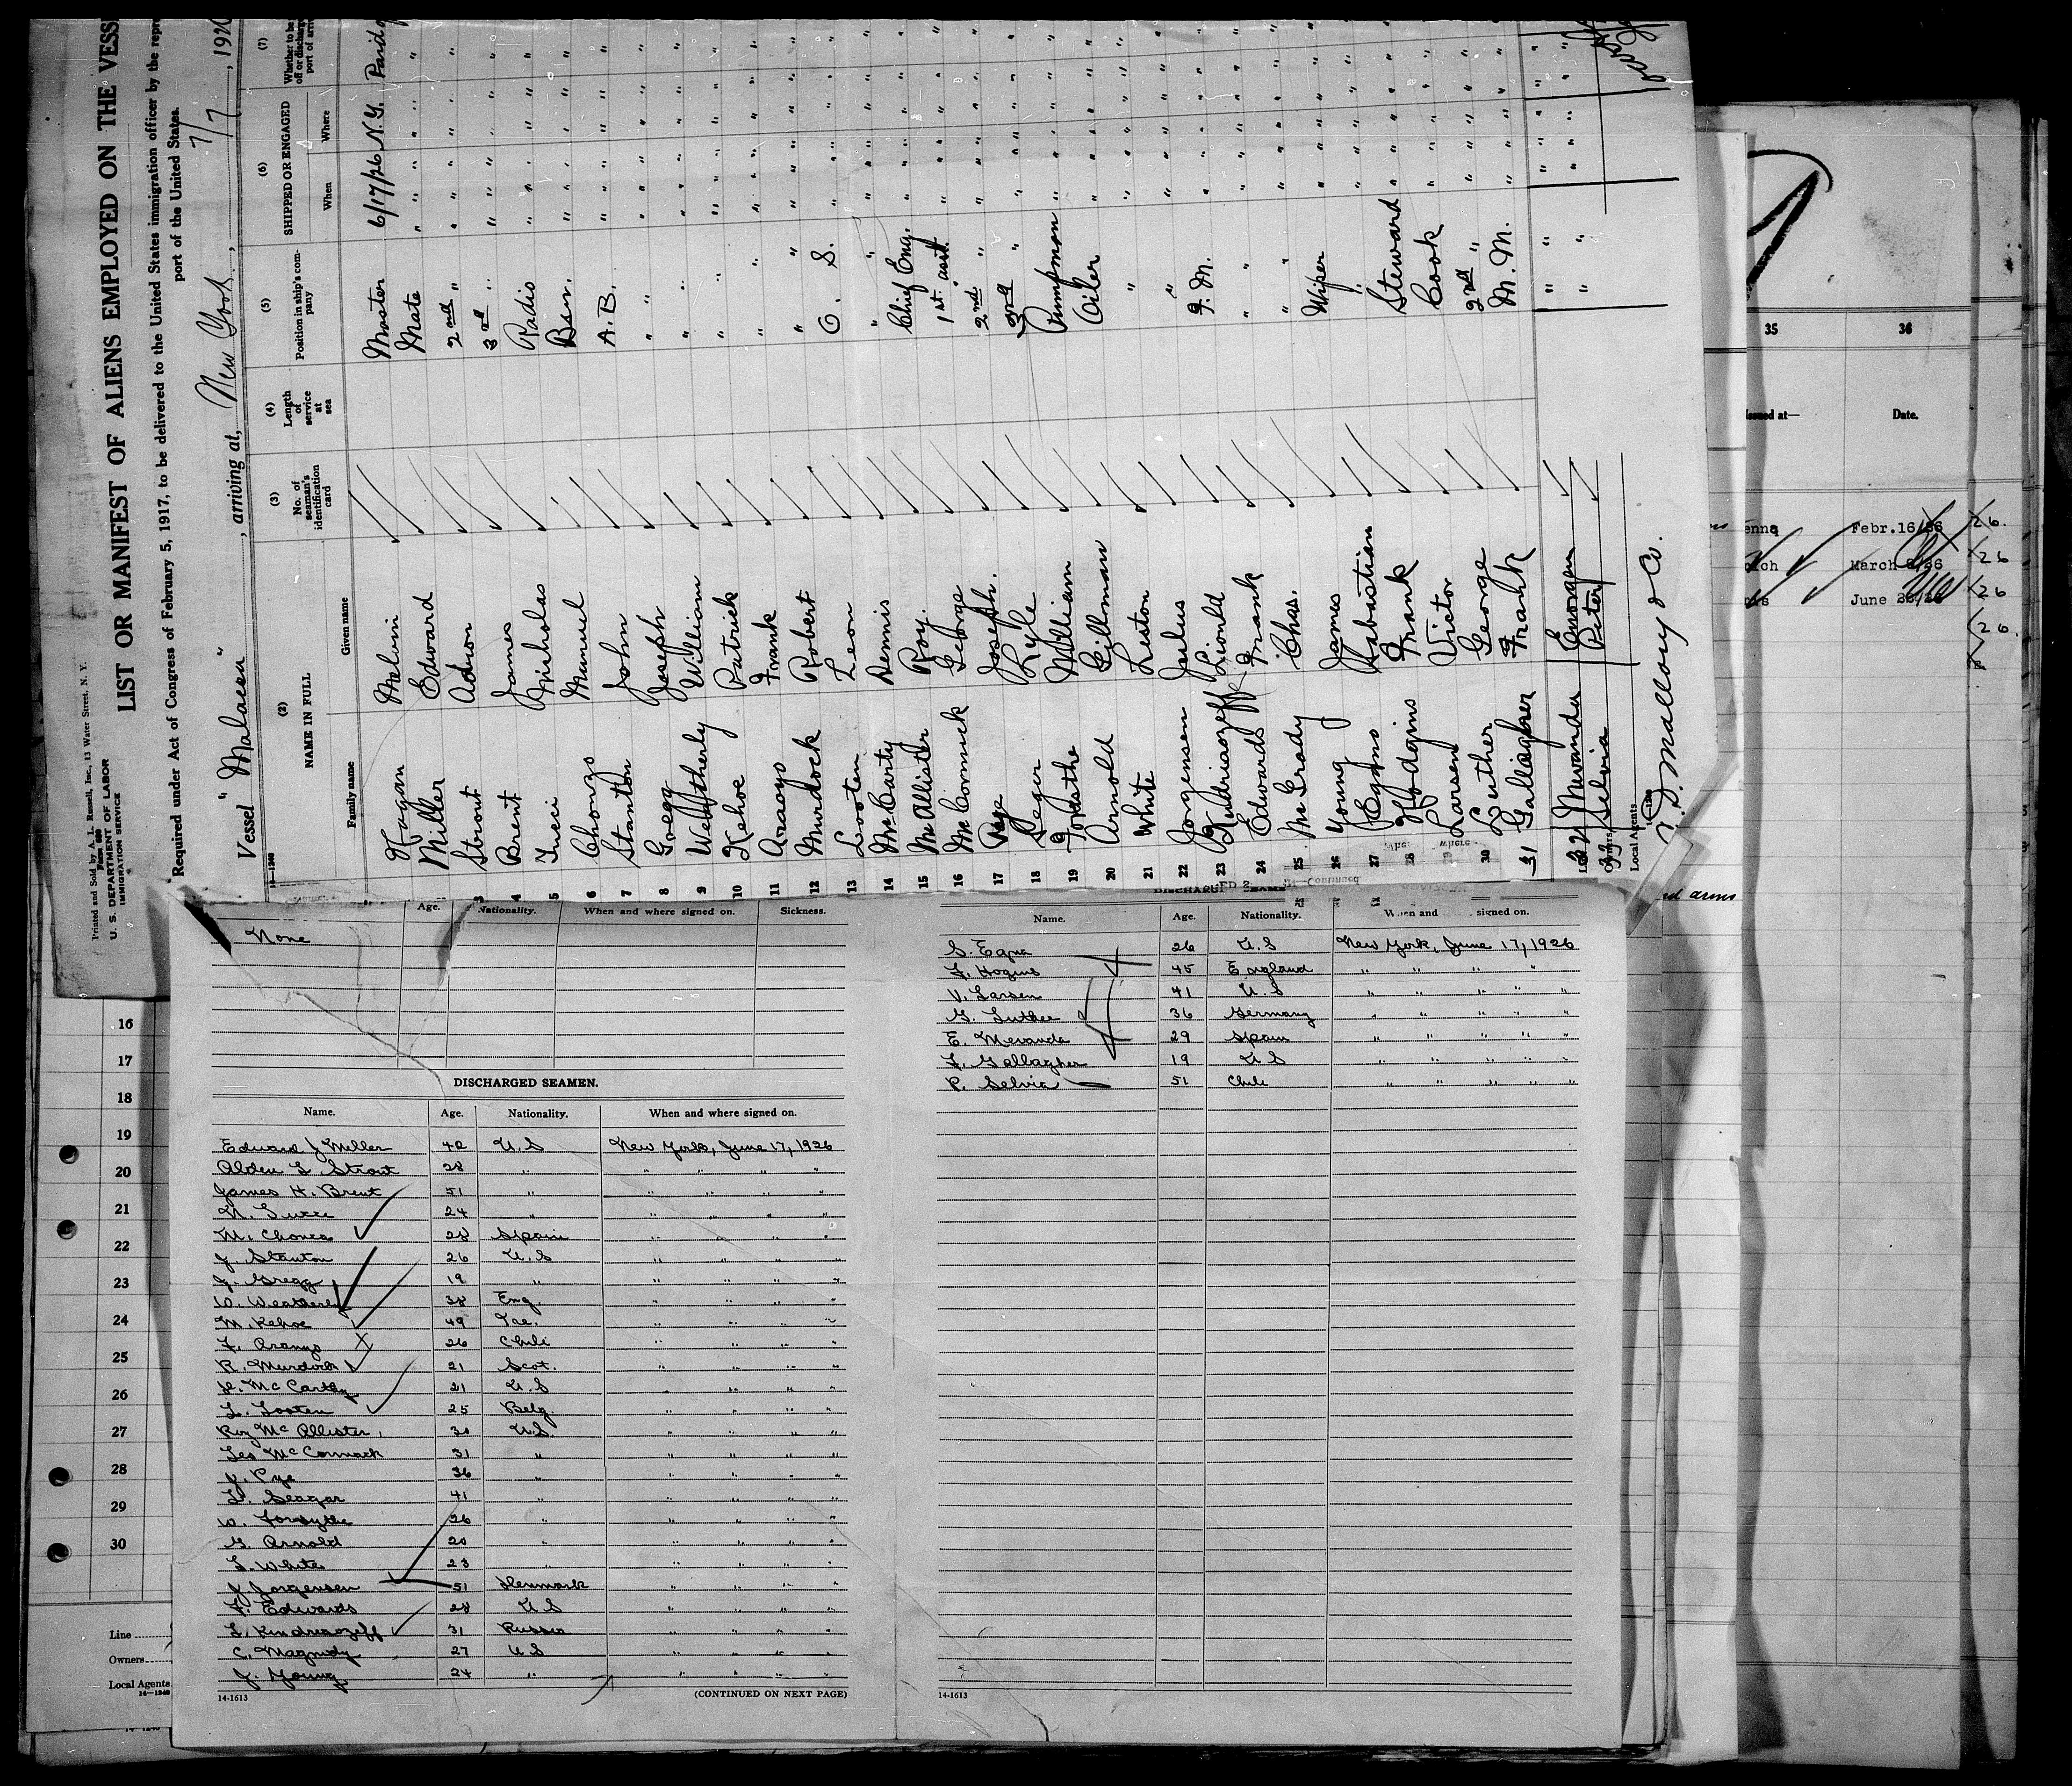 Printed and Sold by A. L. Russell, Inc., 13 Water Street, N. Y.
U. S. DEPARTMENT OF LABOR
IMMIGRATION SERVICE
LIST OR MANIFEST OF ALIENS EMPLOYED ON THE VESS
Required under Act of Congress of February 5, 1917, to be delivered to the United States immigration officer by the repr
port of the United States.
Vessel "Malacca", arriving at, New York, 7/7, 192
14-1240
(2) (3) (4) (5) (6) (7)
NAME IN FULL
No. of seaman's identification card
Length of service at sea
Position in ship's company
SHIPPED OR ENGAGED
Whether to be
off or discharg
port of arri
Family name Given name When Where
Hagan Melvin Master 6/17/26 N.Y. Paid
Miller Edward Mate " " "
3 Strout Adron 2nd " " " "
4 Brent James 3rd " " " "
5 Tucci Nicholas Radio " " "
6 Chonzo Manuel Bsn. " " "
7 Stanton John A.B. " " "
8 Gregg Joseph " " " "
9 Weatherly William " " " "
10 Kehoe Patrick " " " "
11 Araoyo Frank " " " "
12 Murdock Robert " " " "
13 Looten Leon O. S. " " "
14 McCarty Dennis " " " "
15 McAllister Roy Chief Eng. " " "
16 McCormick George 1st. asst. " " "
17 Pye Joseph 2nd " " " "
18 Seger Lyle 3rd " " " "
19 Forsythe William Pumpman " " "
20 Arnold Gillman Oiler " " "
21 White Leston " " " "
22 Jorgensen Julus " " " "
23 Kudriaozeff Lionld F. M. " " "
24 Edwards Frank " " " "
25 McGrady Chas. " " " "
26 Young James Wiper " " "
27 Egno Sabastian " " " "
28 Hodgins Frank Steward " " "
Larsen Victor Cook " " "
30 Luther George 2nd " " " "
31 Gallagher Frank M. M. " " "
32 Mevanda Enorgen " " " "
33 Selvia Peter " " " "
Local Agents C.D. Mallory & Co.
Age. Nationality. When and where signed on. Sickness.
None
DISCHARGED SEAMEN.
Name. Age. Nationality. When and where signed on.
Edward J Miller 42 U S New York, June 17, 1926
Alden L. Strout 28 " " " " "
James H. Brent 51 " " " " "
N. Tucci 24 " " " " "
M. Chonca 28 Spain " " " "
J. Stanton 26 U. S " " " "
J. Gregg 19 " " " " "
W. Weatherly 38 Eng. " " " "
M. Kehoe 49 Ire. " " " "
F. Aranyo 26 Chili " " " "
R. Murdock 21 Scot. " " " "
D. McCarthy 21 U. S " " " "
L. Looten 25 Belg. " " " "
Roy McAllister 30 U.S. " " " "
Leo McCormack 31 " " " " "
J. Pye 36 " " " " "
L. Seagar 41 " " " " "
W. Forsythe 26 " " " " "
G. Arnold 20 " " " " "
L. White 23 " " " " "
J. Jorgensen 51 Denmark " " " "
F. Edwards 28 U S " " " "
L. Kendreaozeff 31 Russia " " " "
C. Magrady 27 U S " " " "
J. Young 24 " " " " "
14-1613 (CONTINUED ON NEXT PAGE)
Continued
Name. Age. Nationality. When and signed on.
S. Egna 26 U. S New York, June 17, 1926
F. Hogins 45 England " " " "
V. Larsen 41 U. S " " " " "
G. Luther 36 Germany " " " " "
E. Mevanda 29 Spain " " " " "
F. Gallagher 19 U S " " " " "
P. Selvia 51 Chili " " " " "
14-1613
16
17
18
19
20
21
22
23
24
25
26
27
28
29
30
Line
Owners
Local Agents
14-1240
35 36
Issued at— Date.
enna Febr.16/26
March 26
June 26
26.
26
26
26.